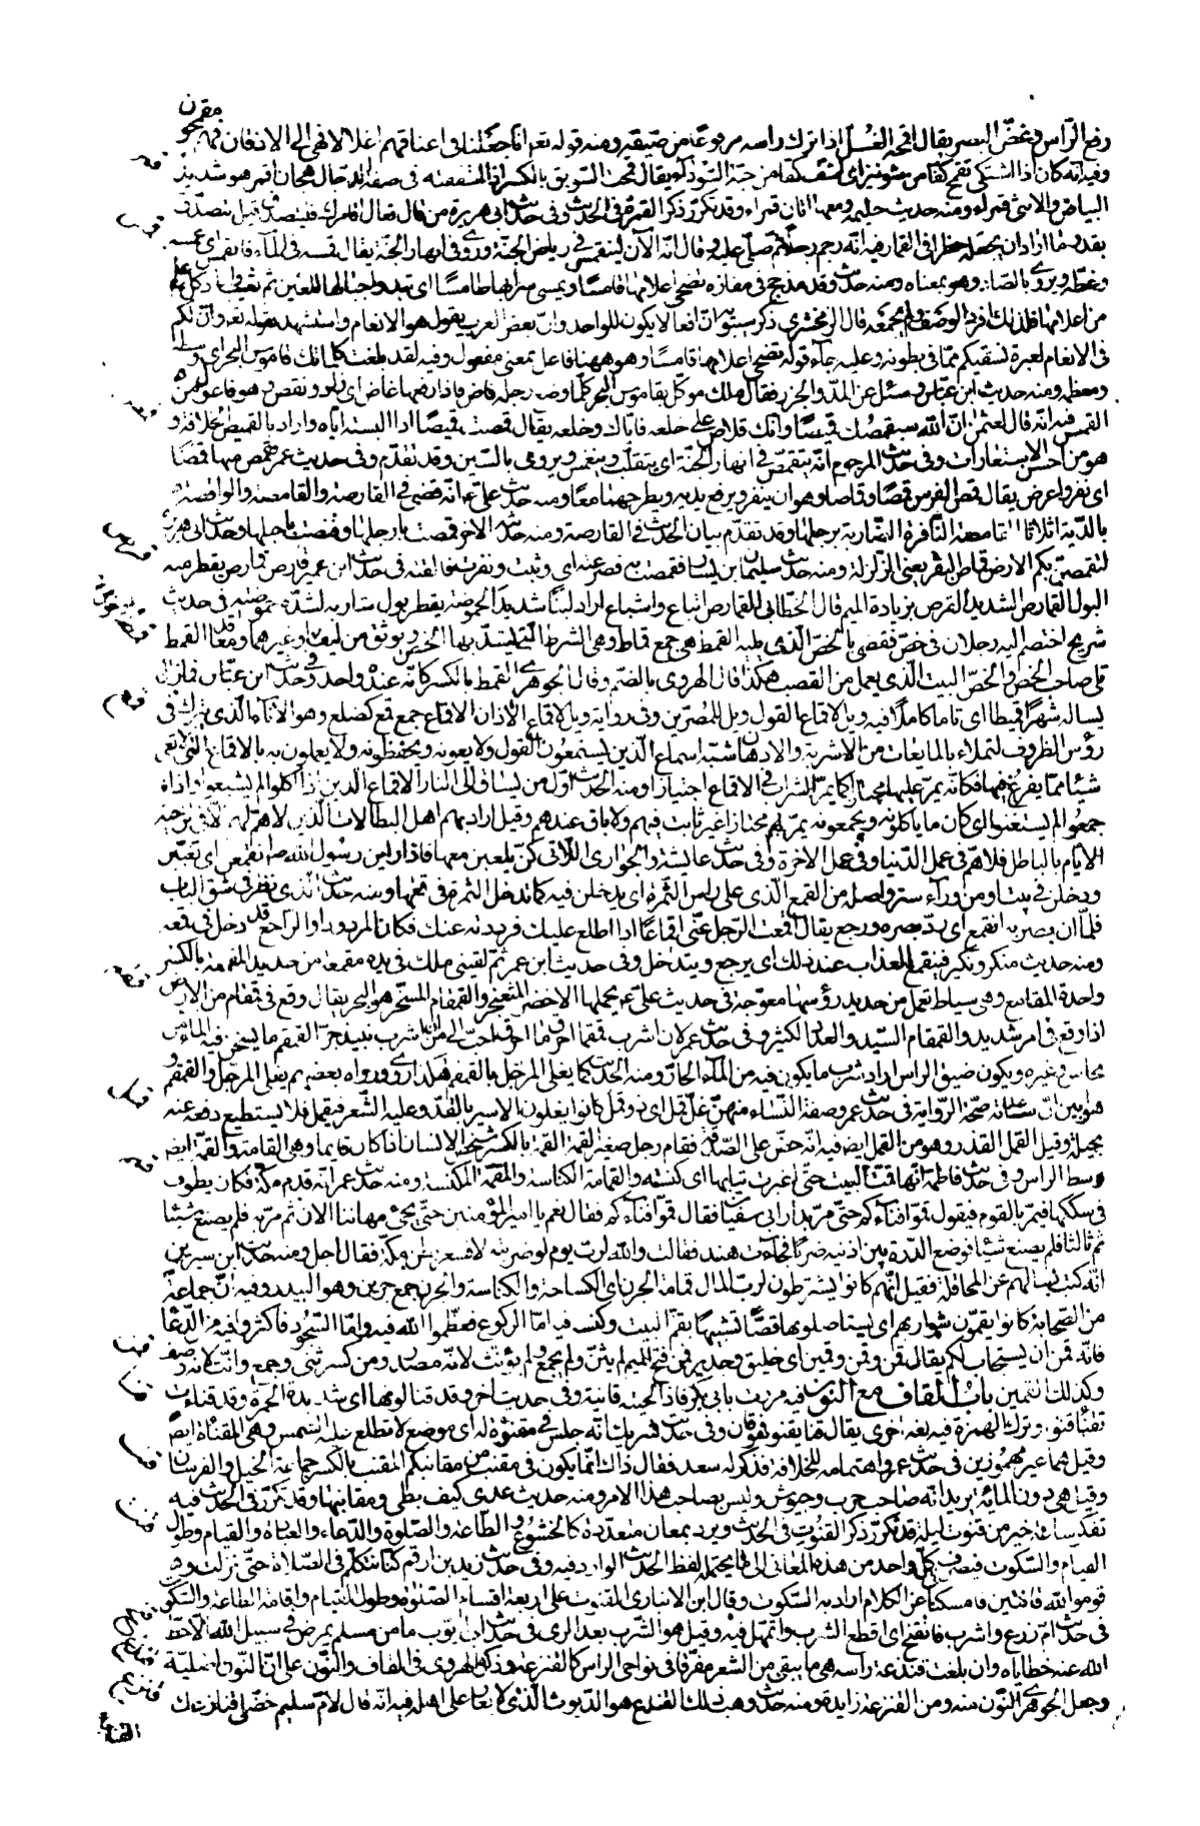 رفع الرأس وغض البصر يقال اقمحه الغل اذا ترك راسه مرفوعا من ضيقه ومنه قوله تعالى انا جعلنا فى اعناقهم اغلالا فهى الى الاذقان فهم مقمحون
وفيه انه كان اذا اشتكى تقمح كفا من شونيز اى استف كفا من حبة السوداء يقال قمحت السويق بالكسر اذا استففته فى صفة الدجال هجان اقمر هو شديد
البياض والانثى قمراء ومنه حديث حليمة ومعها اتان قمراء وقد تكرر ذكر القمرة فى الحديث وفى حديث ابى هريرة من قال تعال اقامرك فليتصدق قيل يتصدق
بقدر ما اراد ان يجعله خطرا فى القمار فيه انه رجم رجلا ثم صلى عليه وقال انه الآن لينقمس فى رياض الجنة وروى فى انهار الجنة يقال قمسه فى الماء فانقمس اى غمسه
وغطه ويروى بالصاد وهو بمعناه ومنه حديث وفد مذحج فى مفازة تضحى اعلامها قامسا ويمسى سرابها طامسا اى تبدو جبالها للعين ثم تغيب
من اعلامها فلذلك افرد الوصف ولم يجمعه قال الزمخشرى ذكر سيبويه ان افعالا يكون للواحد وان بعض العرب يقول هو الانعام واستشهد بقوله تعالى وان لكم
فى الانعام لعبرة نسقيكم مما فى بطونه وعليه جاء قوله تضحى اعلامها قامسا وهو ههنا فاعل بمعنى مفعول وفيه لقد بلغت كلماتك قاموس البحر اى وسطه
ومعظمه ومنه حديث ابن عباس وسئل عن المد والجزر فقال ملك موكل بقاموس البحر كلما وضع رجله فاض فاذا رفعها غاض اى زاد ونقص وهو فاعول من
القمس فيه انه قال لعثمن ان الله سيقمصك قميصا وانك تلاص على خلعه فاياك وخلعه يقال قمصته قميصا اذا البسته اياه واراد بالقميص الخلافة و
هو من احسن الاستعارات وفى حديث المرجوم انه يتقمص فى انهار الجنة اى يتقلب وينغمس ويروى بالسين وقد تقدم وفى حديث عمر فقمص منها قمصا
اى نفر واعرض يقال قمص الفرس قمصا وقماصا وهو ان ينفر ويرفع يديه ويطرحهما معا ومنه حديث على انه قضى فى القارصة والقامصة والواقصة
بالدية اثلاثا القامصة النافرة الضاربة برجلها وقد تقدم بيان الحديث فى القارصة ومنه حديث الاخر قمصت بارجلها وقنصت باحبلها وحديث ابى هريرة
لتقمصن بكم الارض قماص البقر يعنى الزلزلة ومنه حديث سليمان بن يسار فقمصت به فصرعته اى وثبت ونفرت فالقته فى حديث ابن عمير قارص قمارص يقطر منه
البول القمارص الشديد القرص بزيادة الميم قال الخطابى القمارص اتباع واشباع اراد لبنا شديد الحموضة يقطر بول شاربه لشدة حموضته فى حديث
شريح اختصم اليه رجلان فى خص فقضى بالخص للذى تليه القمط هى جمع قماط وهى الشرط التى يشد بها الخص ويوثق من ليف او غيرهما ومعاقد القمط
تلى صاحب الخص والخص البيت الذى يعمل من القصب هكذا قال الهروى بالضم وقال الجوهرى القمط بالكسر كانه عنده واحد وفى حديث ابن عباس فما زال
يساله شهرا قميطا اى تاما كاملا فيه ويل لاقماع القول ويل للمصرين وفى رواية ويل لاقماع الآذان الاقماع جمع قمع كضلع وهو الاناء الذى يترك فى
رؤس الظروف لتملاء بالمايعات من الاشربة والادهان شبه اسماع الذين يستمعون القول ولا يعونه ويحفظونه ولا يعملون به بالاقماع التى لا تعى
شيئا مما يفرغ فيها فكانه يمر عليها مجتازا كما يمر الشراب فى الاقماع اجتيازا ومنه الحديث اول من يساق الى النار الاقماع الذين اذا اكلوا لم يشبعوا واذا
جمعوا لم يستغنوا اى كان ما ياكلونه ويجمعونه يمر بهم مجتازا غير ثابت فيهم ولا باق عندهم وقيل اراد بهم اهل البطالات الذين لا هم لهم الا فى تزجية
الايام بالباطل فلا هم فى عمل الدنيا ولا فى عمل الاخرة وفى حديث عايشة والجوارى اللاتى كن يلعبن معها فاذا راين رسول الله انقمعن اى تغيبن
ودخلن فى بيت او من وراء ستر واصله من القمع الذى على راس الثمرة اى يدخلن فيه كما تدخل الثمرة فى قمعها ومنه حديث الذى نظر فى شق الباب
فلما ان بصر به انقمع اى رد بصره ورجع يقال اقمعت الرجل عنى اقماعا اذا اطلع عليك فرددته عنك فكان المردود او الراجع قد دخل فى قمعه
ومنه حديث منكر ونكير فينقمع العذاب عند ذلك اى يرجع ويتداخل وفى حديث ابن عمر ثم لقينى ملك فى يده مقمعة من حديد المقمعة بالكسر
واحدة المقامع وهى سياط تعمل من حديد رؤسها معوجة فى حديث على يحملها الاخضر المثعنجر والقمقام المسخر هو البحر يقال وقع فى قمقام من الارض
اذا وقع فى امر شديد والقمقام السيد والعدد الكثير وفى حديث عمر لان اشرب قمقما احرق ما احرق احب الى من ان اشرب نبيذ جر القمقم ما يسخن فيه الماء من
نحاس وغيره ويكون ضيق الراس اراد شرب ما يكون فيه من الماء الحار ومنه الحديث كما يغلى المرجل بالقمقم هكذا روى ورواه بعضهم يغلى المرجل والقمقم
هو ابين ان ساعدته صحة الرواية فى حديث عمر وصفة النساء منهن غل قمل اى ذو قمل كانوا يغلون الاسير بالقد وعليه الشعر فيقمل فلا يستطيع دفعه عنه
بحيلة وقيل القمل القذر وهو من القمل ايضا فيه انه حض على الصدقة فقام رجل صغير القمة القمة بالكسر شخص الانسان اذا كان قايما وهى القامة والقمة ايضا
وسط الراس وفى حديث فاطمة انها قمت البيت حتى اغبرت ثيابها اى كنسته والقمامة الكناسة والمقمة المكنسة ومنه حديث عمر انه قدم مكة فكان يطوف
فى سككها فيمر بالقوم فيقول قموا فناءكم حتى مر بدار ابى سفين فقال قموا فناءكم فقال نعم يا امير المؤمنين حتى يجئ مهاننا الان ثم مر به فلم يصنع شيئا
ثم ثالثا فلم يصنع شيئا فوضع الدرة بين اذنيه ضربا فجاءت هند فقالت والله لرب يوم لو ضربته لاقشعر بطن مكة فقال اجل ومنه حديث ابن سيرين
انه كتب يسالهم عن المحاقلة فقيل انهم كانوا يشترطون لرب المال قمامة الجرن اى الكساحة والكناسة والجرن جمع جرين وهو البيدر وفيه ان جماعة
من الصحابة كانوا يقمون شواربهم اى يستاصلونها قصا تشبيها بقم البيت وكنسه فيه اما الركوع فعظموا الله فيه واما السجود فاكثروا فيه من الدعا
فانه قمن ان يستجاب لكم يقال قمن وقمن وقمين اى خليق وجدير فمن فتح الميم لم يثن ولم يجمع ولم يؤنث لانه مصدر ومن كسر ثنى وجمع وانث لانه وصف
وكذلك القمين باب القاف مع النون فيه مررت بابى بكر فاذا لحيته قانية وفى حديث اخر وقد قنا لونها اى شديدة الحمرة وقد قنات
تقنأ قنوء وترك الهمزة فيه لغة اخرى يقال قنا يقنو فهو قان وفى حديث شريك انه جلس فى مقنوة له اى موضع لا تطلع عليه الشمس وهى المقناة ايضا
وقيل هما غير مهموزين فى حديث عمر واهتمامه للخلافة فذكر له سعد فقال ذاك انما يكون فى مقنب من مقانبكم المقنب بالكسر جماعة الخيل والفرسان
وقيل هى دون المائة يريد انه صاحب حرب وجيوش وليس بصاحب هذا الامر ومنه حديث عدى كيف بطى ومقانبها وقد تكرر فى الحديث فيه
تفكر ساعة خير من قنوت ليلة قد تكرر ذكر القنوت فى الحديث ويرد بمعان متعددة كالخشوع والطاعة والصلوة والدعاء والعبادة والقيام وطول
القيام والسكوت فيصرف كل واحد من هذه المعانى الى ما يحتمله لفظ الحديث الوارد فيه وفى حديث زيد بن ارقم كنا نتكلم فى الصلاة حتى نزلت و
قوموا لله قانتين فامسكنا عن الكلام اراد به السكوت وقال ابن الانبارى القنوت على اربعة اقسام الصلوة وطول القيام واقامة الطاعة والسكوت
فى حديث ام زرع واشرب فاتقنح اى اقطع الشرب واتمهل فيه وقيل هو الشرب بعد الرى فى حديث ابى ايوب ما من مسلم يمرض فى سبيل الله الا حط
الله عنه خطاياه وان بلغت قنذعة راسه هى ما يبقى من الشعر مفرقا فى نواحى الراس كالقنزعة وذكره الهروى فى القاف والنون على ان النون اصلية
وجعل الجوهرى النون منه ومن القنزعة زايدة ومنه حديث وهب ذلك القنذع هو الديوث الذى لا يغار على اهله فيه انه قال لام سليم خضلى قنازعك
القنازع